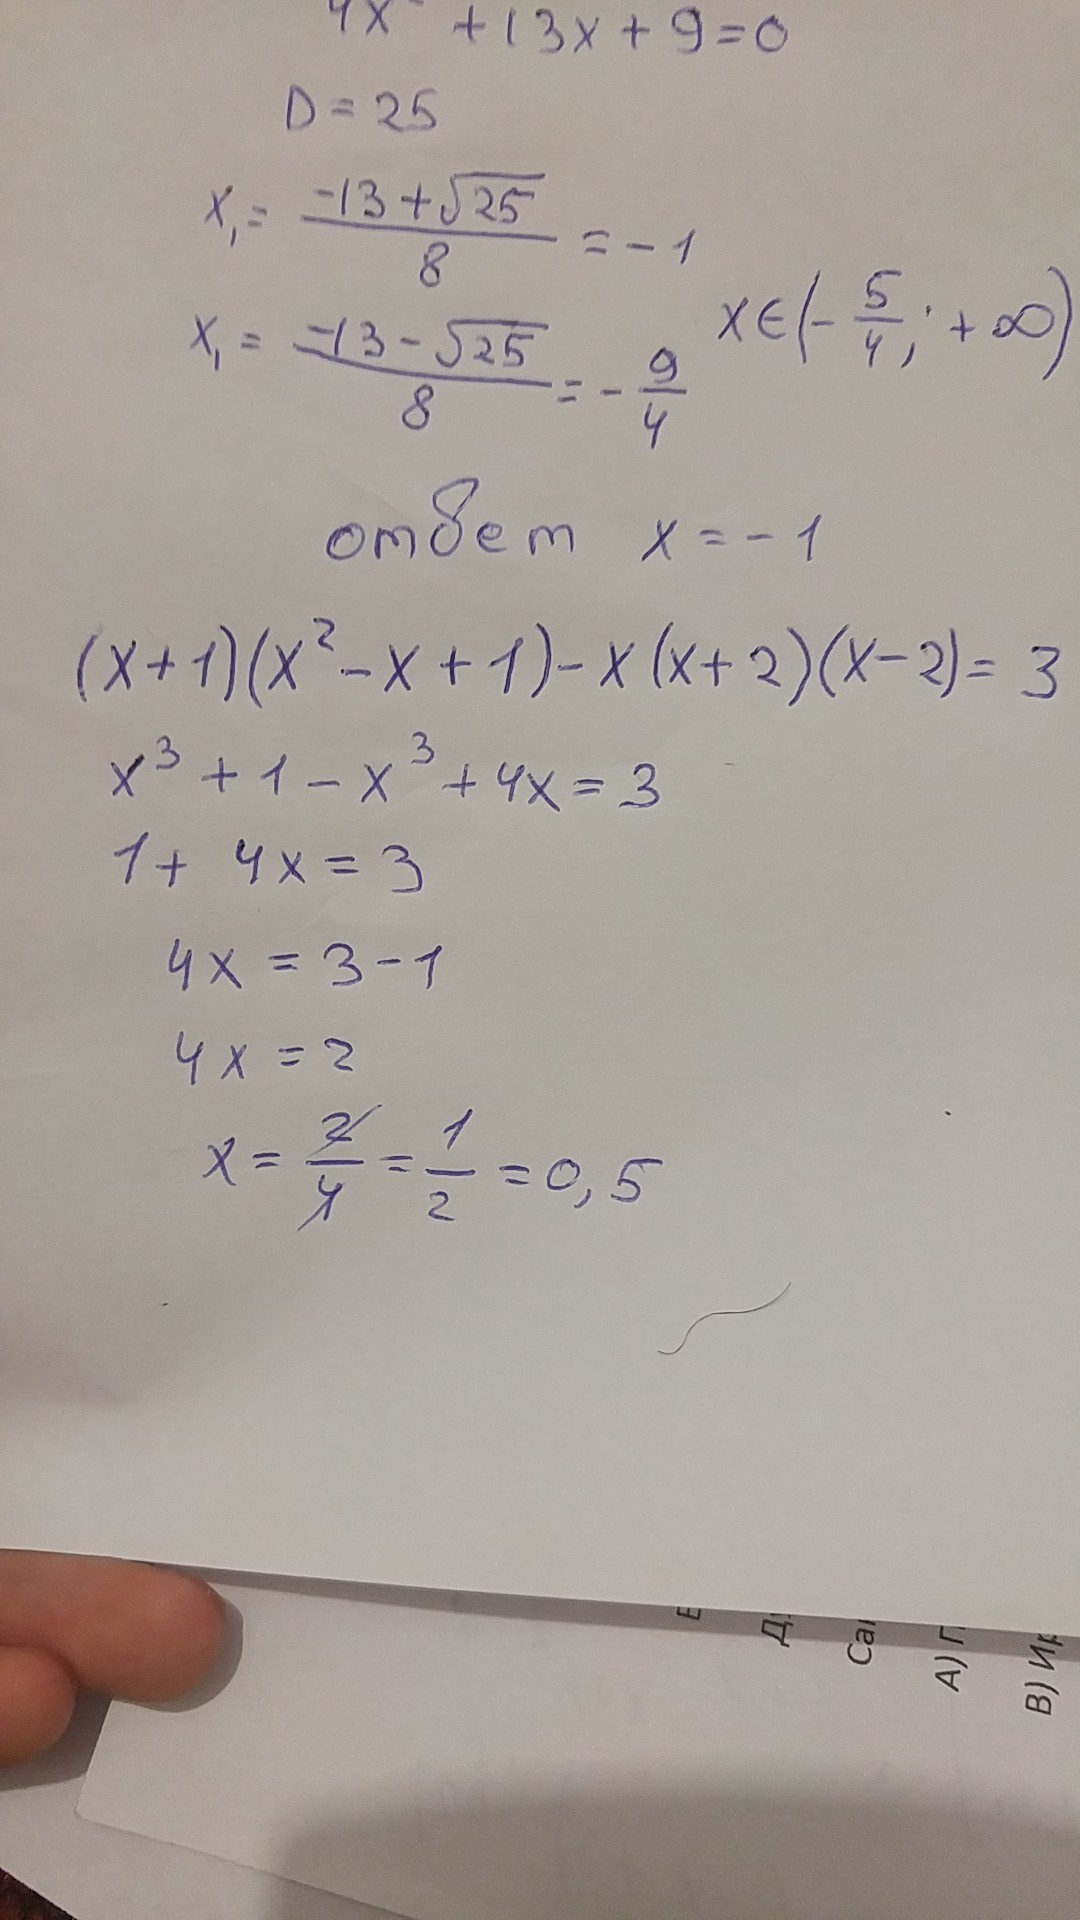 4x² +13x+9=0
D=25
x₁= (-13+√25)/8 = -1
x₁= (-13-√25)/8 = -9/4   x∈(-5/4; +∞)
ответ x=-1
(x+1)(x²-x+1)-x(x+2)(x-2)=3
x³+1-x³+4x=3
1+4x=3
4x=3-1
4x=2
x=2/4=1/2=0,5
Са
А) П
В) Ир